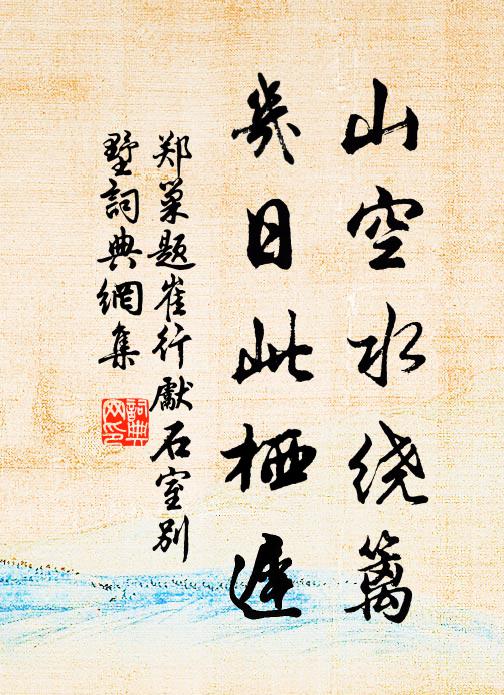 山空水绕篱
几日此栖迟
郑巢题崔行献石室别
墅词典网集
词典网印